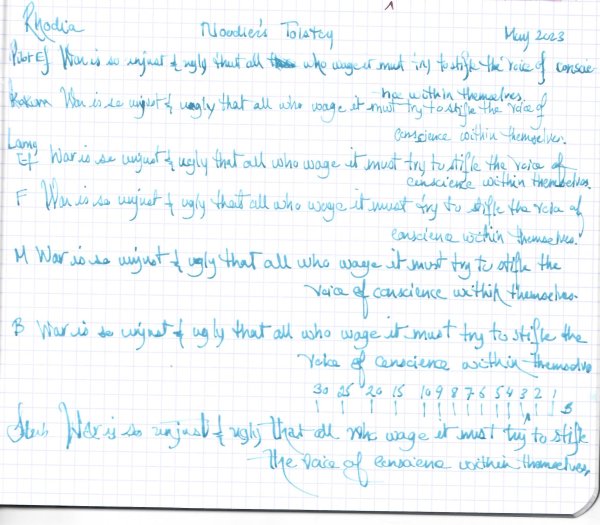 Rhodia Noodler's Tolstoy May 2023
Pilot Ef War is so unjust & ugly that all who wage it must try to stifle the voice of conscie
nce within themselves.
Kakuno War is so unjust & ugly that all who wage it must try to stifle the voice of
conscience within themselves.
Lamy
Ef War is so unjust & ugly that all who wage it must try to stifle the voice of
conscience within themselves.
F War is so unjust & ugly that all who wage it must try to stifle the voice of
conscience within themselves.
M War is so unjust & ugly that all who wage it must try to stifle the
voice of conscience within themselves.
B War is so unjust & ugly that all who wage it must try to stifle the
voice of conscience within themselves
30 25 20 15 10 9 8 7 6 5 4 3 2 1
s
War is so unjust & ugly that all who wage it must try to stifle
the voice of conscience within themselves.